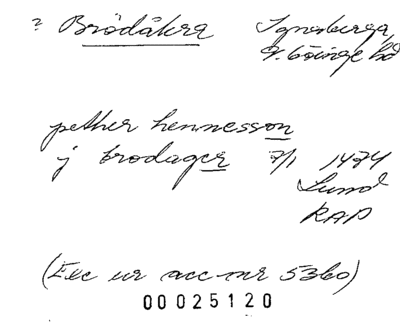 ? Brödåkra Ignaberga
V. Göinge hd
pether hennesson
j brodager 7/1 1474
Lund
RAP
(Exc ur acc-nr 5360)
00025120